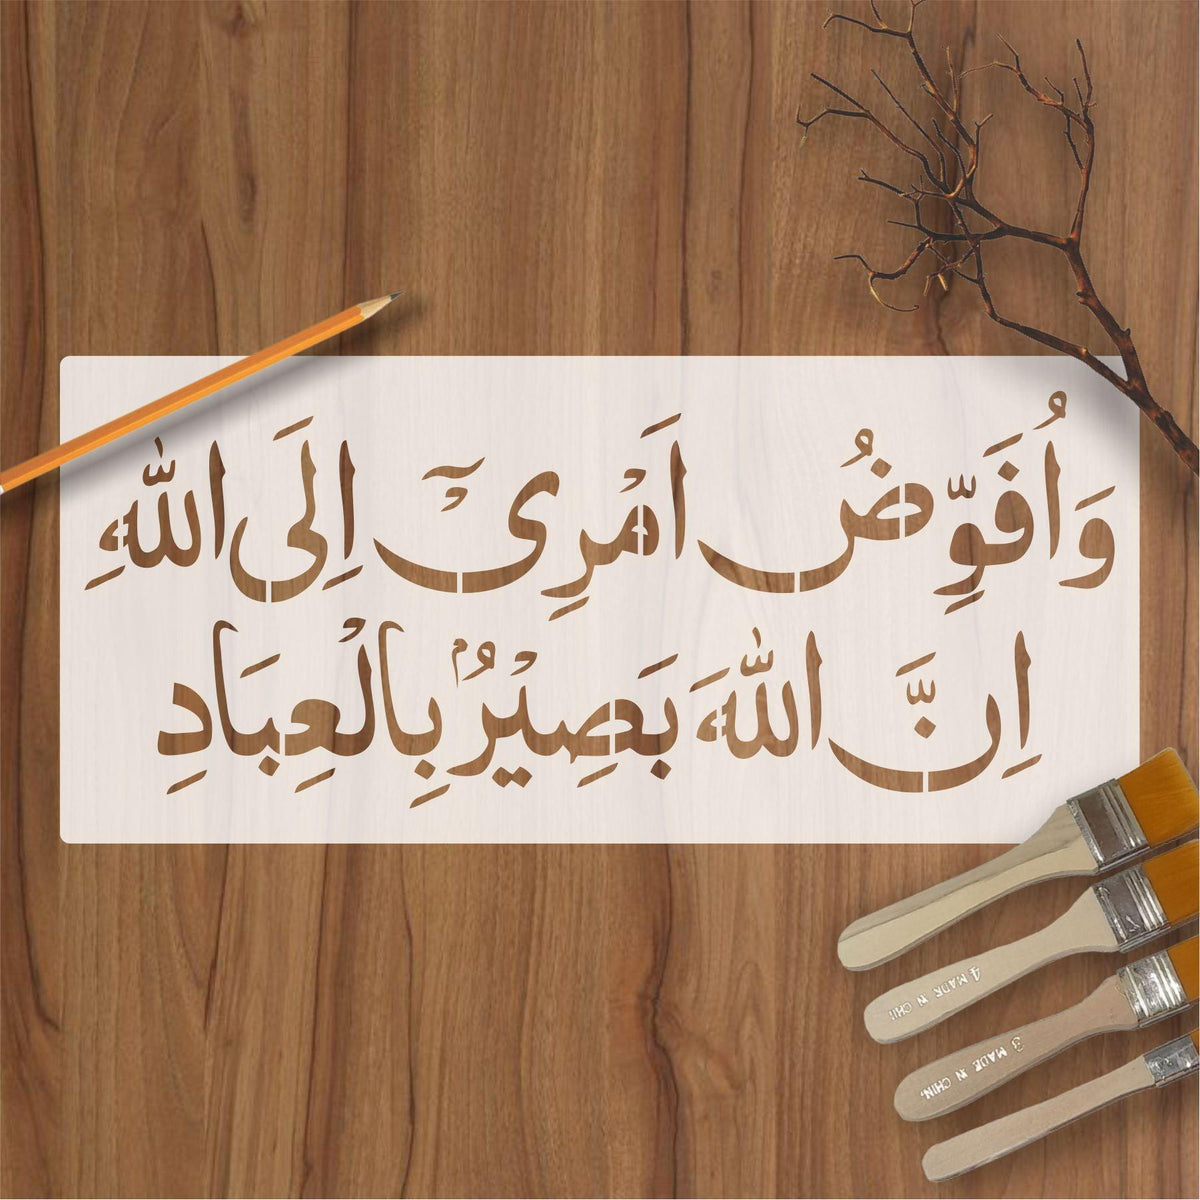 وَاُفَوِّضُ اَمْرِیْۤ اِلَی اللّٰهِ
اِنَّ اللّٰهَ بَصِیْرٌۢ بِالْعِبَادِ
4 MADE IN CHIN
3 MADE IN CHIN.